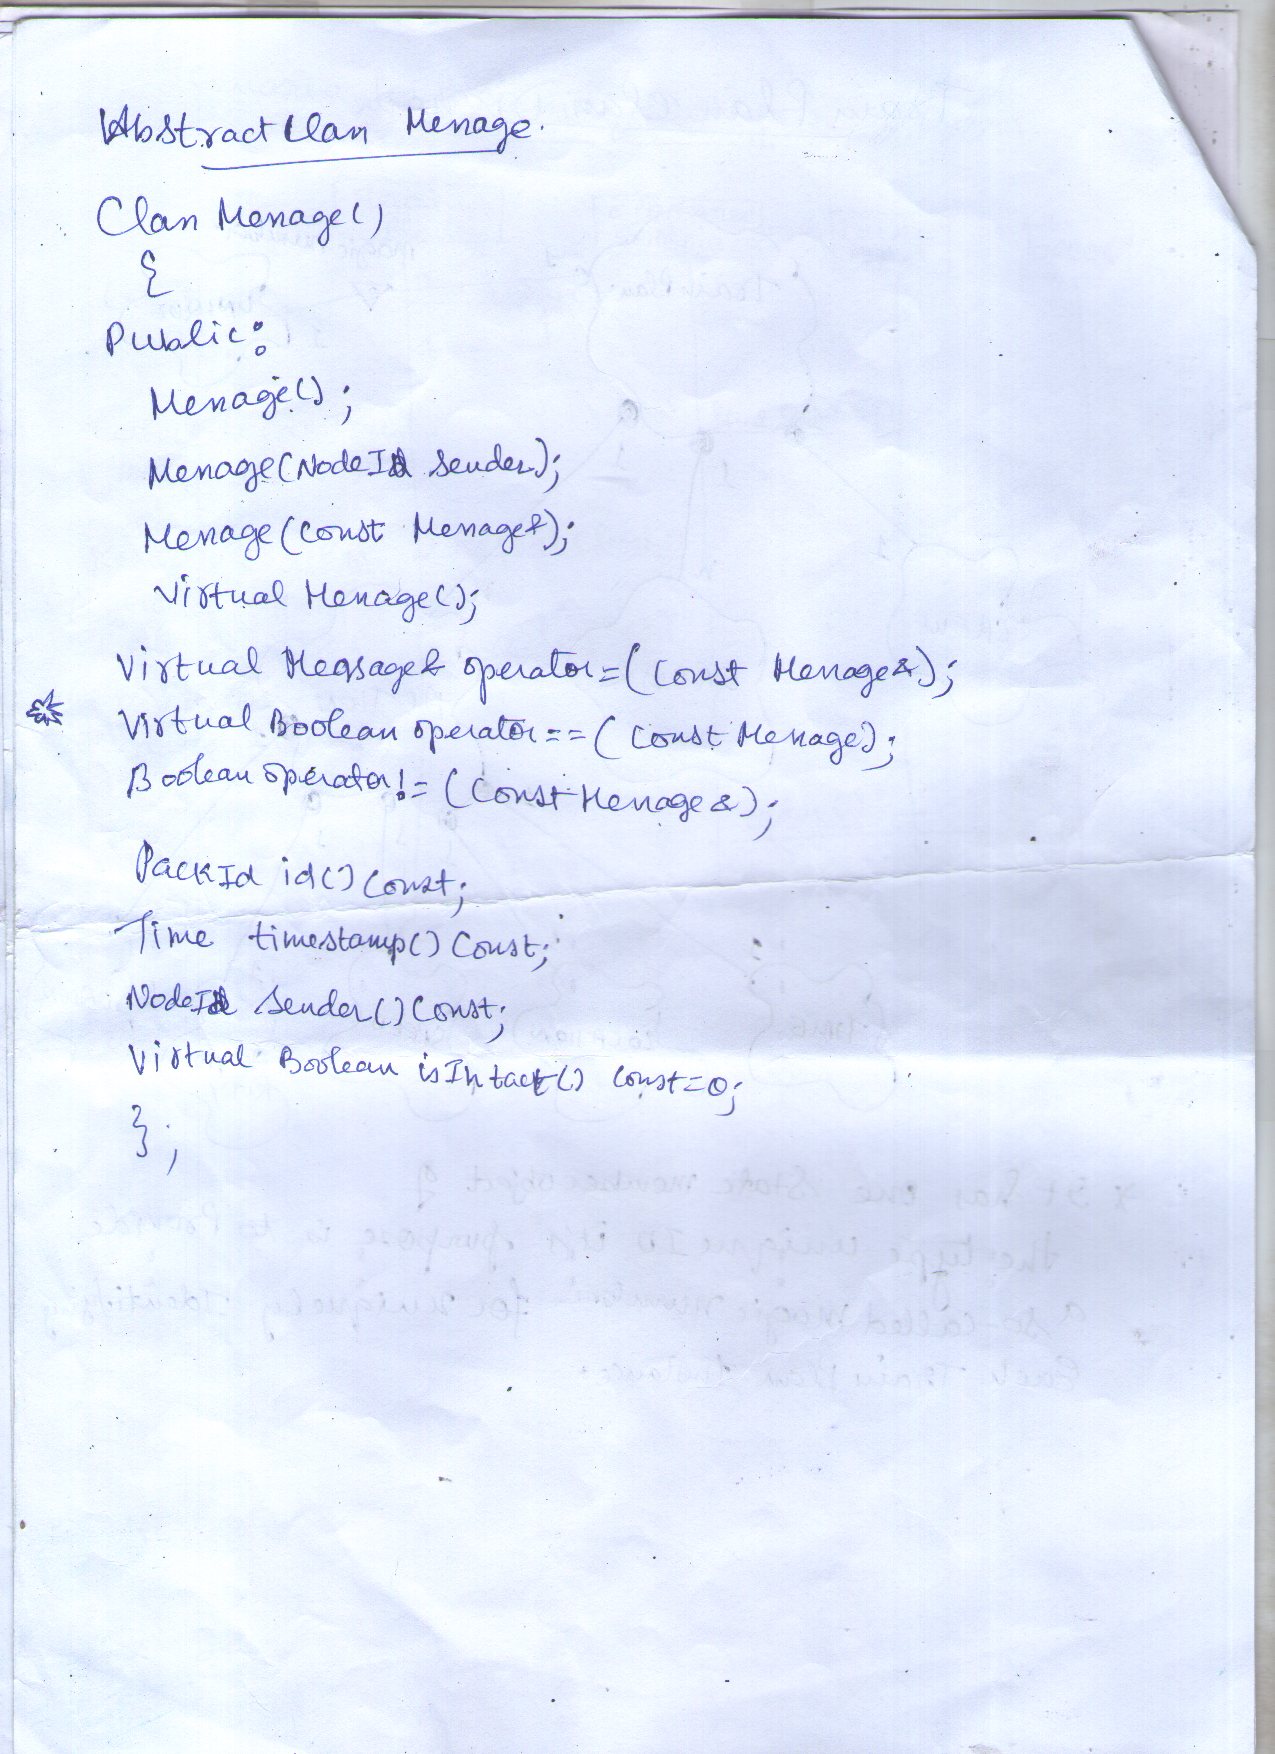 Abstract Class Message.
Class Message()
{
Public:
Message();
Message(NodeId sender);
Message(Const Message&);
Virtual Message();
Virtual Meqsage& operator=(Const Message&);
Virtual Boolean operator==(Const Message);
Boolean operator!=(Const Message&);
PackId id() Const;
Time timestamp() Const;
NodeId Sender() Const;
Virtual Boolean isIntact() Const=0;
};